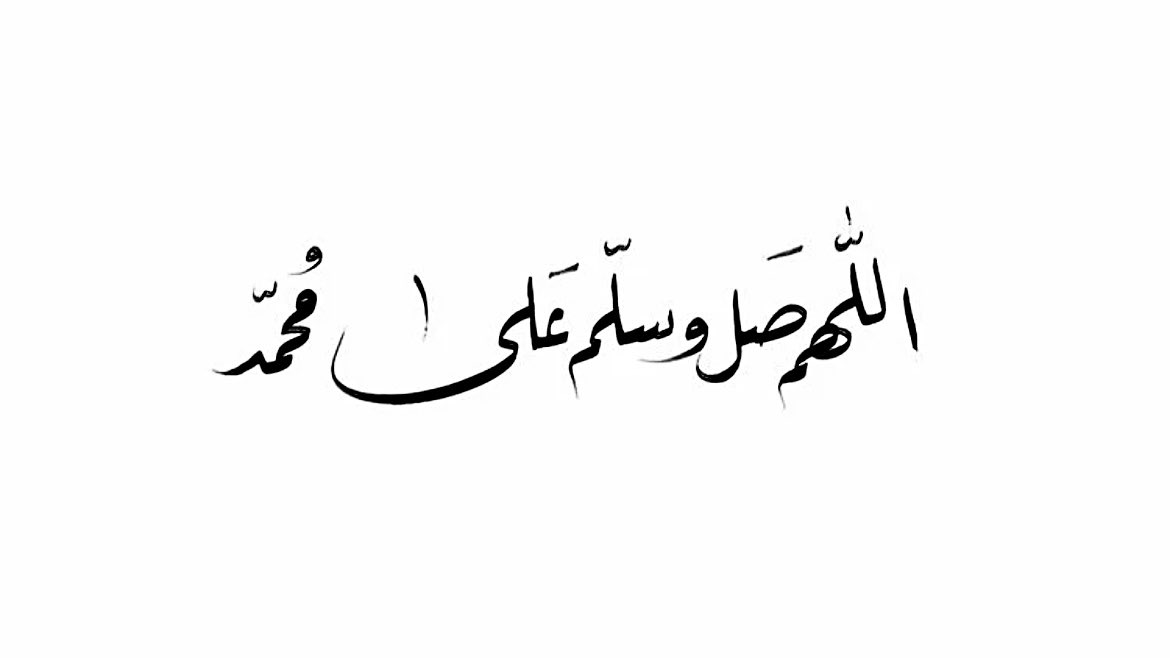 اللّٰهم صَل وسلّم عَلى مُحمّد